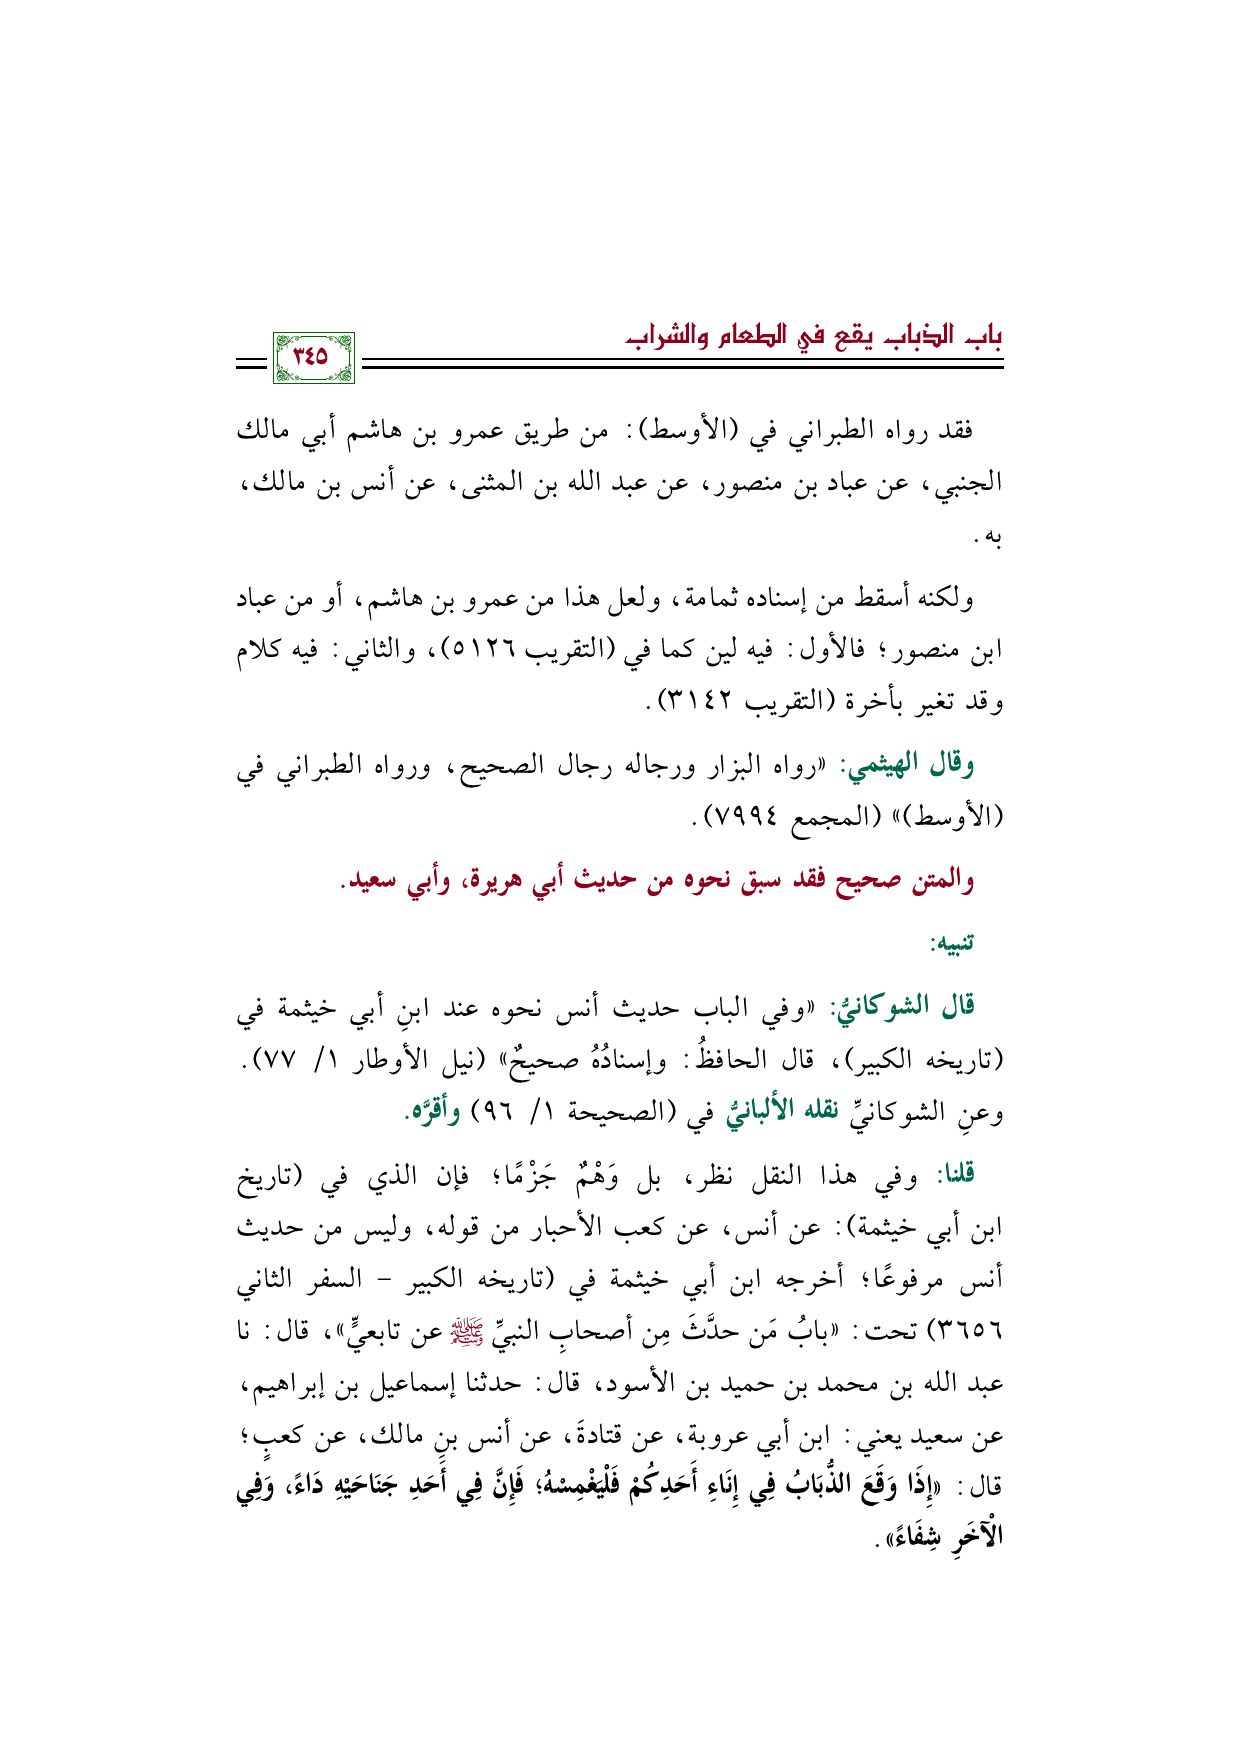 باب الذباب يقع في الطعام والشراب
٣٤٥
فقد رواه الطبراني في (الأوسط): من طريق عمرو بن هاشم أبي مالك
الجنبي، عن عباد بن منصور، عن عبد الله بن المثنى، عن أنس بن مالك،
به.
ولكنه أسقط من إسناده ثمامة، ولعل هذا من عمرو بن هاشم، أو من عباد
ابن منصور؛ فالأول: فيه لين كما في (التقريب ٥١٢٦)، والثاني: فيه كلام
وقد تغير بأخرة (التقريب ٣١٤٢).
وقال الهيثمي: «رواه البزار ورجاله رجال الصحيح، ورواه الطبراني في
(الأوسط)» (المجمع ٧٩٩٤).
والمتن صحيح فقد سبق نحوه من حديث أبي هريرة، وأبي سعيد.
تنبيه:
قال الشوكانيُّ: «وفي الباب حديث أنس نحوه عند ابنِ أبي خيثمة في
(تاريخه الكبير)، قال الحافظُ: وإسنادُهُ صحيحٌ» (نيل الأوطار ١/ ٧٧).
وعنِ الشوكانيِّ نقله الألبانيُّ في (الصحيحة ١/ ٩٦) وأقرَّه.
قلنا: وفي هذا النقل نظر، بل وَهْمٌ جَزْمًا؛ فإن الذي في (تاريخ
ابن أبي خيثمة): عن أنس، عن كعب الأحبار من قوله، وليس من حديث
أنس مرفوعًا؛ أخرجه ابن أبي خيثمة في (تاريخه الكبير – السفر الثاني
٣٦٥٦) تحت: «بابُ مَن حدَّثَ مِن أصحابِ النبيِّ ﷺ عن تابعيٍّ»، قال: نا
عبد الله بن محمد بن حميد بن الأسود، قال: حدثنا إسماعيل بن إبراهيم،
عن سعيد يعني: ابن أبي عروبة، عن قتادةَ، عن أنس بنِ مالك، عن كعبٍ؛
قال: «إِذَا وَقَعَ الذُّبَابُ فِي إِنَاءِ أَحَدِكُمْ فَلْيَغْمِسْهُ؛ فَإِنَّ فِي أَحَدِ جَنَاحَيْهِ دَاءً، وَفِي
الْآخَرِ شِفَاءً».